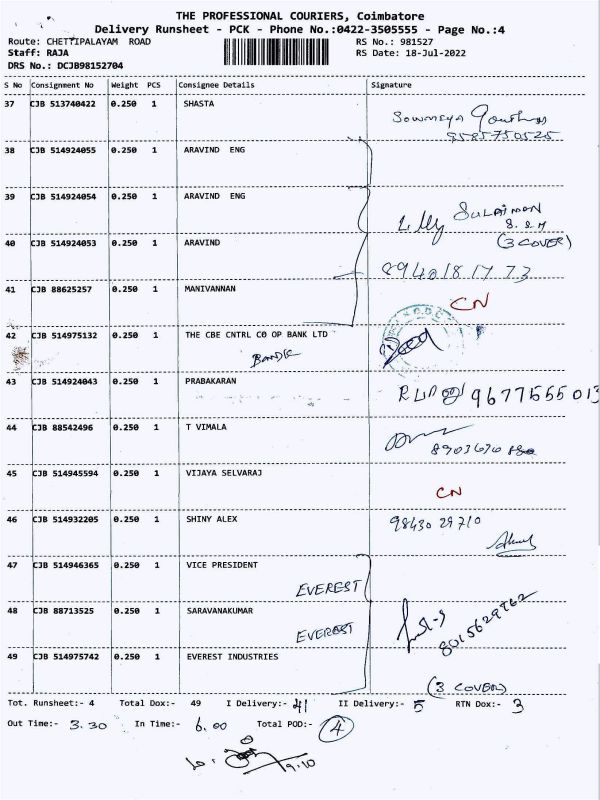 THE PROFESSIONAL COURIERS, Coimbatore
Delivery Runsheet - PCK - Phone No.:0422-3505555 - Page No.:4
Route: CHETTIPALAYAM ROAD RS No.: 981527
Staff: RAJA RS Date: 18-Jul-2022
DRS No.: DCJB98152704
S No Consignment No Weight PCS Consignee Details Signature
37 CJB 513740422 0.250 1 SHASTA
Sowmeya
38 CJB 514924055 0.250 1 ARAVIND ENG
39 CJB 514924054 0.250 1 ARAVIND ENG
SULAIMAN
40 CJB 514924053 0.250 1 ARAVIND
(3 COVER)
8940181773
41 CJB 88625257 0.250 1 MANIVANNAN
CN
42 CJB 514975132 0.250 1 THE CBE CNTRL CO OP BANK LTD
43 CJB 514924043 0.250 1 PRABAKARAN
9677555013
44 CJB 88542496 0.250 1 T VIMALA
45 CJB 514945594 0.250 1 VIJAYA SELVARAJ
CN
46 CJB 514932205 0.250 1 SHINY ALEX
98430 29710
47 CJB 514946365 0.250 1 VICE PRESIDENT
EVEREST
48 CJB 88713525 0.250 1 SARAVANAKUMAR
EVEREST
8015629762
49 CJB 514975742 0.250 1 EVEREST INDUSTRIES
(3 COVER)
Tot. Runsheet:- 4 Total Dox:- 49 I Delivery:- 41 II Delivery:- 5 RTN Dox:- 3
Out Time:- 3.30 In Time:- 6.00 Total POD:- 4